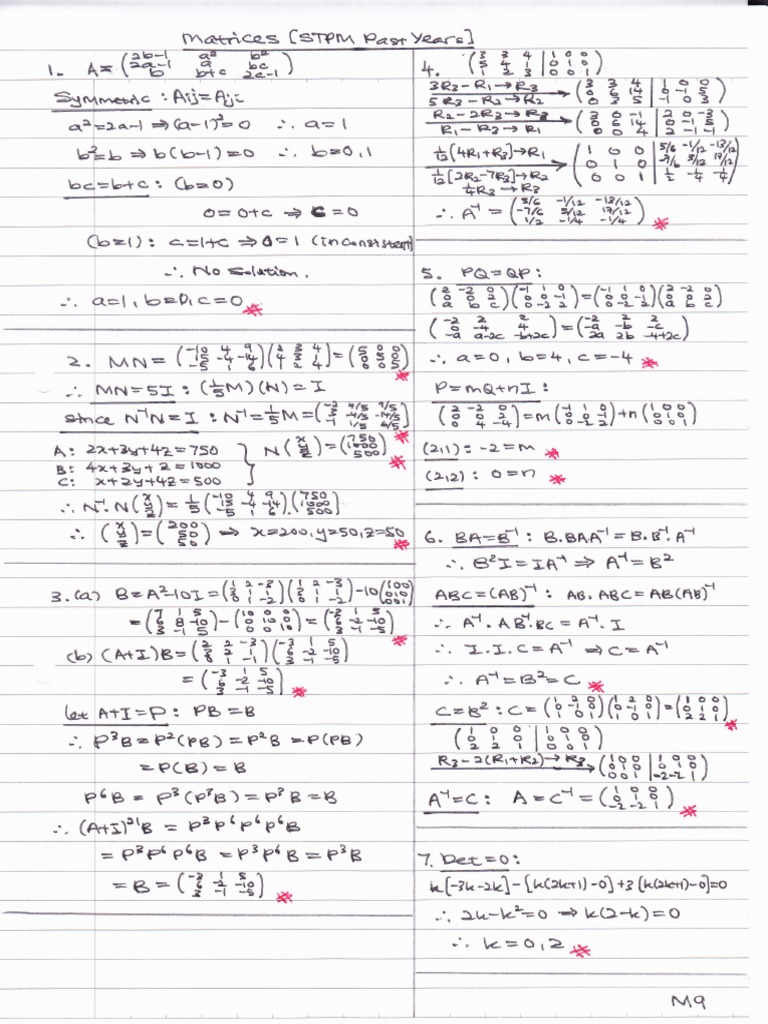 Matrices [STPM Past Years]
1. A = (2b-1 a² b²
2a-1 a bc
b b+c 2c-1)
Symmetric : Aij = Aji
a²=2a-1 ⇒ (a-1)²=0 ∴ a=1
b²=b ⇒ b(b-1)=0 ∴ b=0,1
bc=b+c : (b=0)
0=0+c ⇒ c=0
(b=1): c=1+c ⇒ 0=1 (inconsistent)
∴ No solution.
∴ a=1, b=0, c=0 *
2. MN = (-10 4 9
-5 -4 -14 6) = (5 0 0
0 5 0
0 0 5) *
∴ MN=5I : (1/5 M)(N)=I
Since N⁻¹N=I : N⁻¹=1/5 M= *
A: 2x+3y+4z=750
B: 4x+3y+z=1000
C: x+2y+4z=500
N(x y z)=(750 1000 500) *
∴ N⁻¹.N(x y z)=1/5
∴ (x y z)=(200 50 50) ⇒ x=200, y=50, z=50 *
3. (a) B=A²-10I=(1 2 -3
3 1 1
0 1 -2)(1 2 -3
3 1 1
0 1 -2)-10(1 0 0
0 1 0
0 0 1)
=(7 1 5
6 8 -10
3 -1 5)-(10 0 0
0 10 0
0 0 10)=(-3 1 5
6 -2 -10
3 -1 -5) *
(b) (A+I)B=(2 2 -3
3 2 1
0 1 -1)(-3 1 5
6 -2 -10
3 -1 -5)
=(-3 1 5
6 -2 -10
3 -1 -5) *
let A+I=P : PB=B
∴ P³B=P²(PB)=P²B=P(PB)
=P(B)=B
P⁶B = P³(P³B)=P³B=B
∴ (A+I)²¹B = P³P⁶P⁶P⁶B
= P³P⁶P⁶B = P³P⁶B = P³B
= B = (-3 1 5
6 -2 -10
3 -1 -5) *
4. (3 3 4 | 1 0 0
5 4 1 | 0 1 0
1 2 3 | 0 0 1)
3R₃-R₁→R₃
5R₃-R₂→R₂
(3 3 4 | 1 0 0
0 6 14 | 0 -1 5
0 3 5 | -1 0 3)
R₂-2R₃→R₃
R₁-R₃→R₁
(3 0 -1 | 2 0 -3
0 6 14 | 0 -1 5
0 0 4 | 2 -1 -1)
1/12[4R₁+R₃]→R₁
1/12[2R₂-7R₃]→R₂
1/4R₃→R₃
(1 0 0 | 5/6 -1/12 -13/12
0 1 0 | -7/6 5/12 17/12
0 0 1 | 1/2 -1/4 -1/4)
∴ A⁻¹ = (5/6 -1/12 -13/12
-7/6 5/12 17/12
1/2 -1/4 -1/4) *
5. PQ=QP:
(2 -2 0
2 0 2
a b c)(-1 1 0
0 0 -1
0 -2 2)=(-1 1 0
0 0 -1
0 -2 2)(2 -2 0
2 0 2
a b c)
∴ a=0, b=4, c=-4 *
P=mQ+nI :
(2,1): -2=m *
(2,2): 0=n *
6. BA=B⁻¹ : B.BAA⁻¹=B.B⁻¹.A⁻¹
∴ B²I=IA⁻¹ ⇒ A⁻¹=B²
ABC=(AB)⁻¹ : AB.ABC=AB(AB)⁻¹
∴ A⁻¹.AB⁻¹.BC=A⁻¹.I
∴ I.I.C=A⁻¹ ⇒ C=A⁻¹
∴ A⁻¹=B²=C *
C=B² : C=(1 2 0
0 -1 0
1 0 1)(1 2 0
0 -1 0
1 0 1)=(1 0 0
0 1 0
2 2 1) *
(1 0 0 | 1 0 0
0 1 0 | 0 1 0
2 2 1 | 0 0 1)
R₃-2(R₁+R₂)→R₃
(1 0 0 | 1 0 0
0 1 0 | 0 1 0
0 0 1 | -2 -2 1)
A⁻¹=C : A=C⁻¹=(1 0 0
0 1 0
-2 -2 1) *
7. Det=0:
k[-3k-2k]-[k(2k+1)-0]+3[k(2k+1)-0]=0
∴ 2k-k²=0 ⇒ k(2-k)=0
∴ k=0,2 *
M9